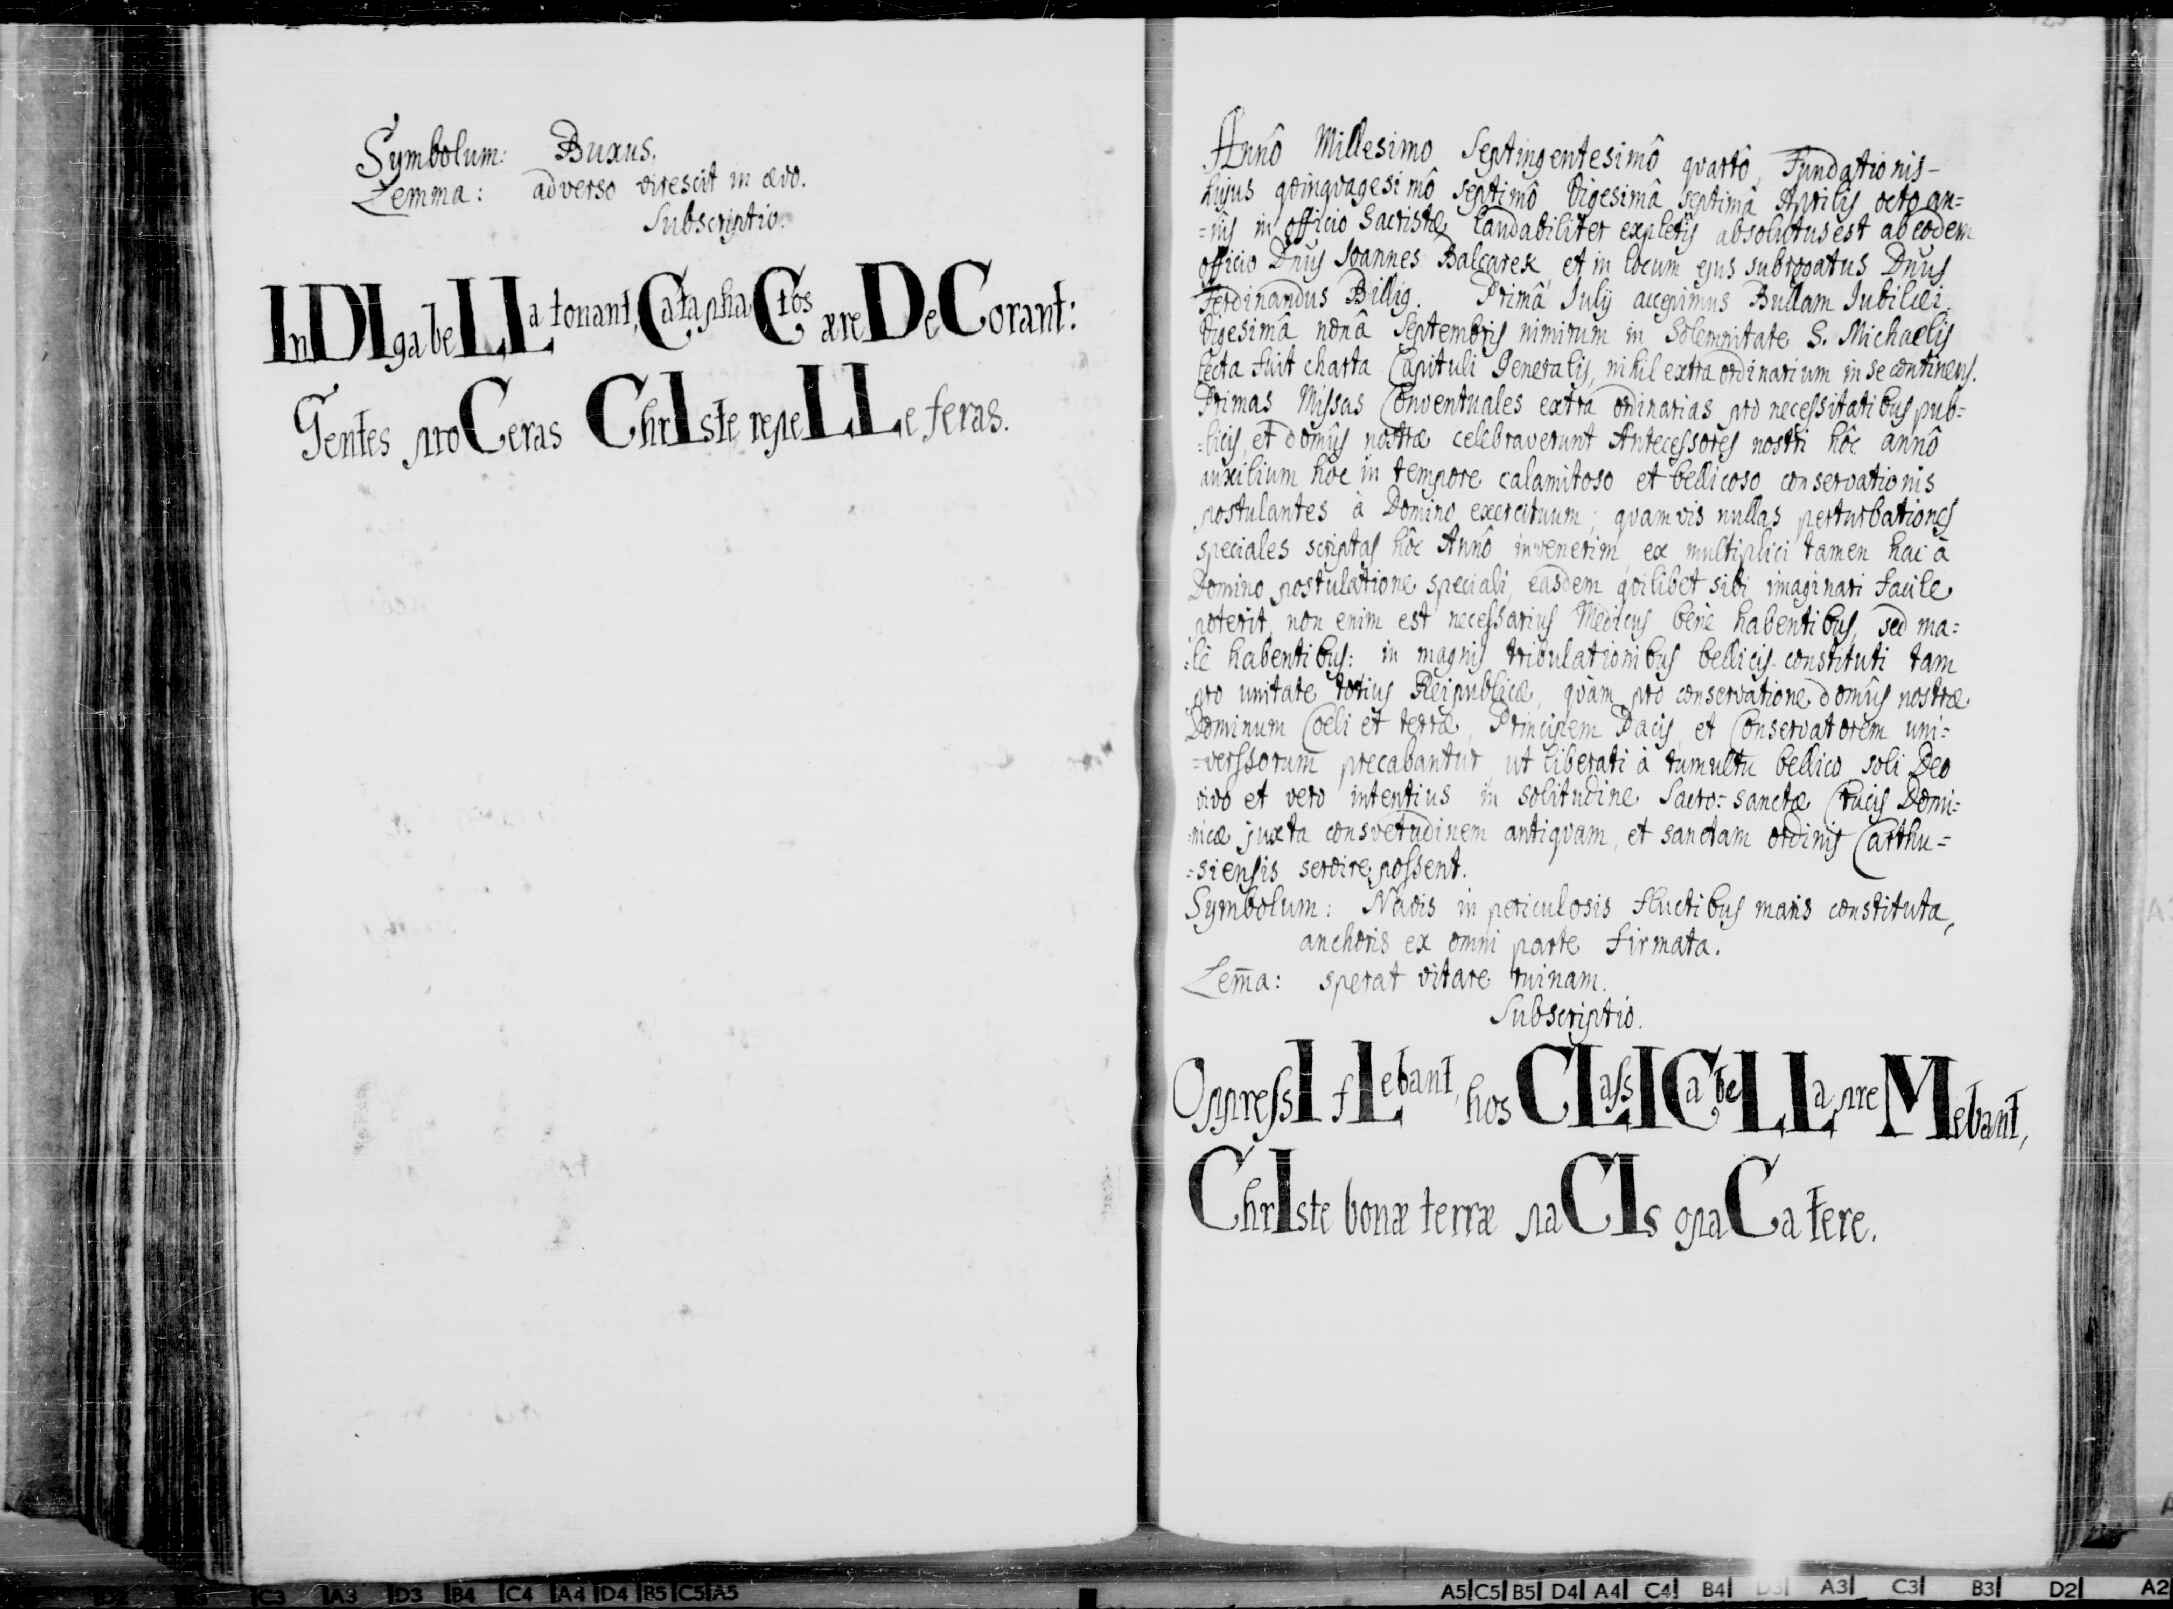 Symbolum: Buxus.
Lemma: adverso virescit in ævo.
Subscriptio.
InDIga beLLa tonant, CataphaCtos ære DeCorant:
Gentes proCeras ChrIste repeLLe feras.
Annô Millesimo Septingentesimô quartô, Fundationis
hujus qvinqvagesimô septimô Vigesimâ septimâ Aprilis octo an=
=nis in officio Sacristæ laudabiliter expletis absolutus est ab eodem
officio Dnus Joannes Balcarek, et in locum ejus subrogatus Dnus
Ferdinandus Billig. Primâ Julij accepimus Bullam Jubilæi.
Vigesimâ nonâ Septembris nimirum in Solemnitate S. Michaelis
lecta fuit charta Capituli Generalis, nihil extra ordinarium in se continens.
Primas Missas Conventuales extra ordinarias pro necessitatibus pub=
=licis, et domûs nostræ celebraverunt Antecessores nostri hôc annô
auxilium hôc in tempore calamitoso et bellicoso conservationis
postulantes à Domino exercituum; qvamvis nullas perturbationes
speciales scriptas hôc Annô invenerim, ex multiplici tamen hac à
Domino postulatione speciali, easdem qvilibet sibi imaginari facile
poterit, non enim est necessarius Medicus benè habentibus, sed ma=
=lè habentibus: in magnis tribulationibus bellicis constituti tam
pro unitate totius Reipublicæ, qvàm pro conservatione domûs nostræ
Dominum Coeli et terræ, Principem Pacis, et Conservatorem uni=
=verssorum precabantur, ut liberati à tumultu bellico soli Deo
vivo et vero intentius in solitudine Sacro=sanctæ Crucis Domi=
=nicæ juxta consvetudinem antiqvam, et sanctam ordinis Carthu=
=siensis servire possent.
Symbolum: Navis in periculosis fluctibus maris constituta,
anchoris ex omni parte firmata.
Lem̄a: sperat vitare ruinam.
Subscriptio.
OppressI fLebant, hos CLassICa beLLa preMebant,
ChrIste bonæ terræ paCIs opaCa tere.